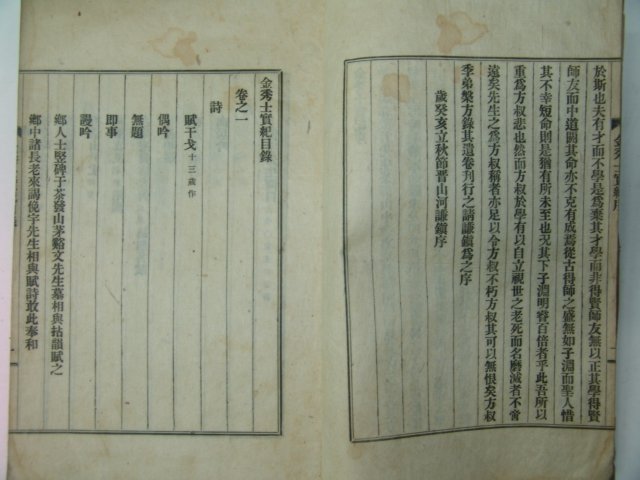 於斯也夫有才而不學是爲棄其才學而非得賢師友無以正其學得賢
師友而中道閼其命亦不克有成焉從古得師之盛無如子淵而聖人惜
其不幸短命則是猶有所未至也况其下子淵明睿百倍者乎此吾所以
重爲方叔悲也然而方叔於學有以自立視世之老死而名磨滅者不啻
遠矣先生之爲方叔稱者亦足以令方叔不朽方叔其可以無恨矣方叔
季弟槃方錄其遺卷刊行之請謙鎭爲之序
歲癸亥立秋節晉山河謙鎭序
金秀士實紀目錄
卷之一
詩
賦干戈 十三歲作
偶吟
無題
即事
謾吟
鄕人士竪碑于茶發山茅谿文先生墓相與拈韻賦之
鄕中諸長老來謁俛宇先生相與賦詩敢此奉和